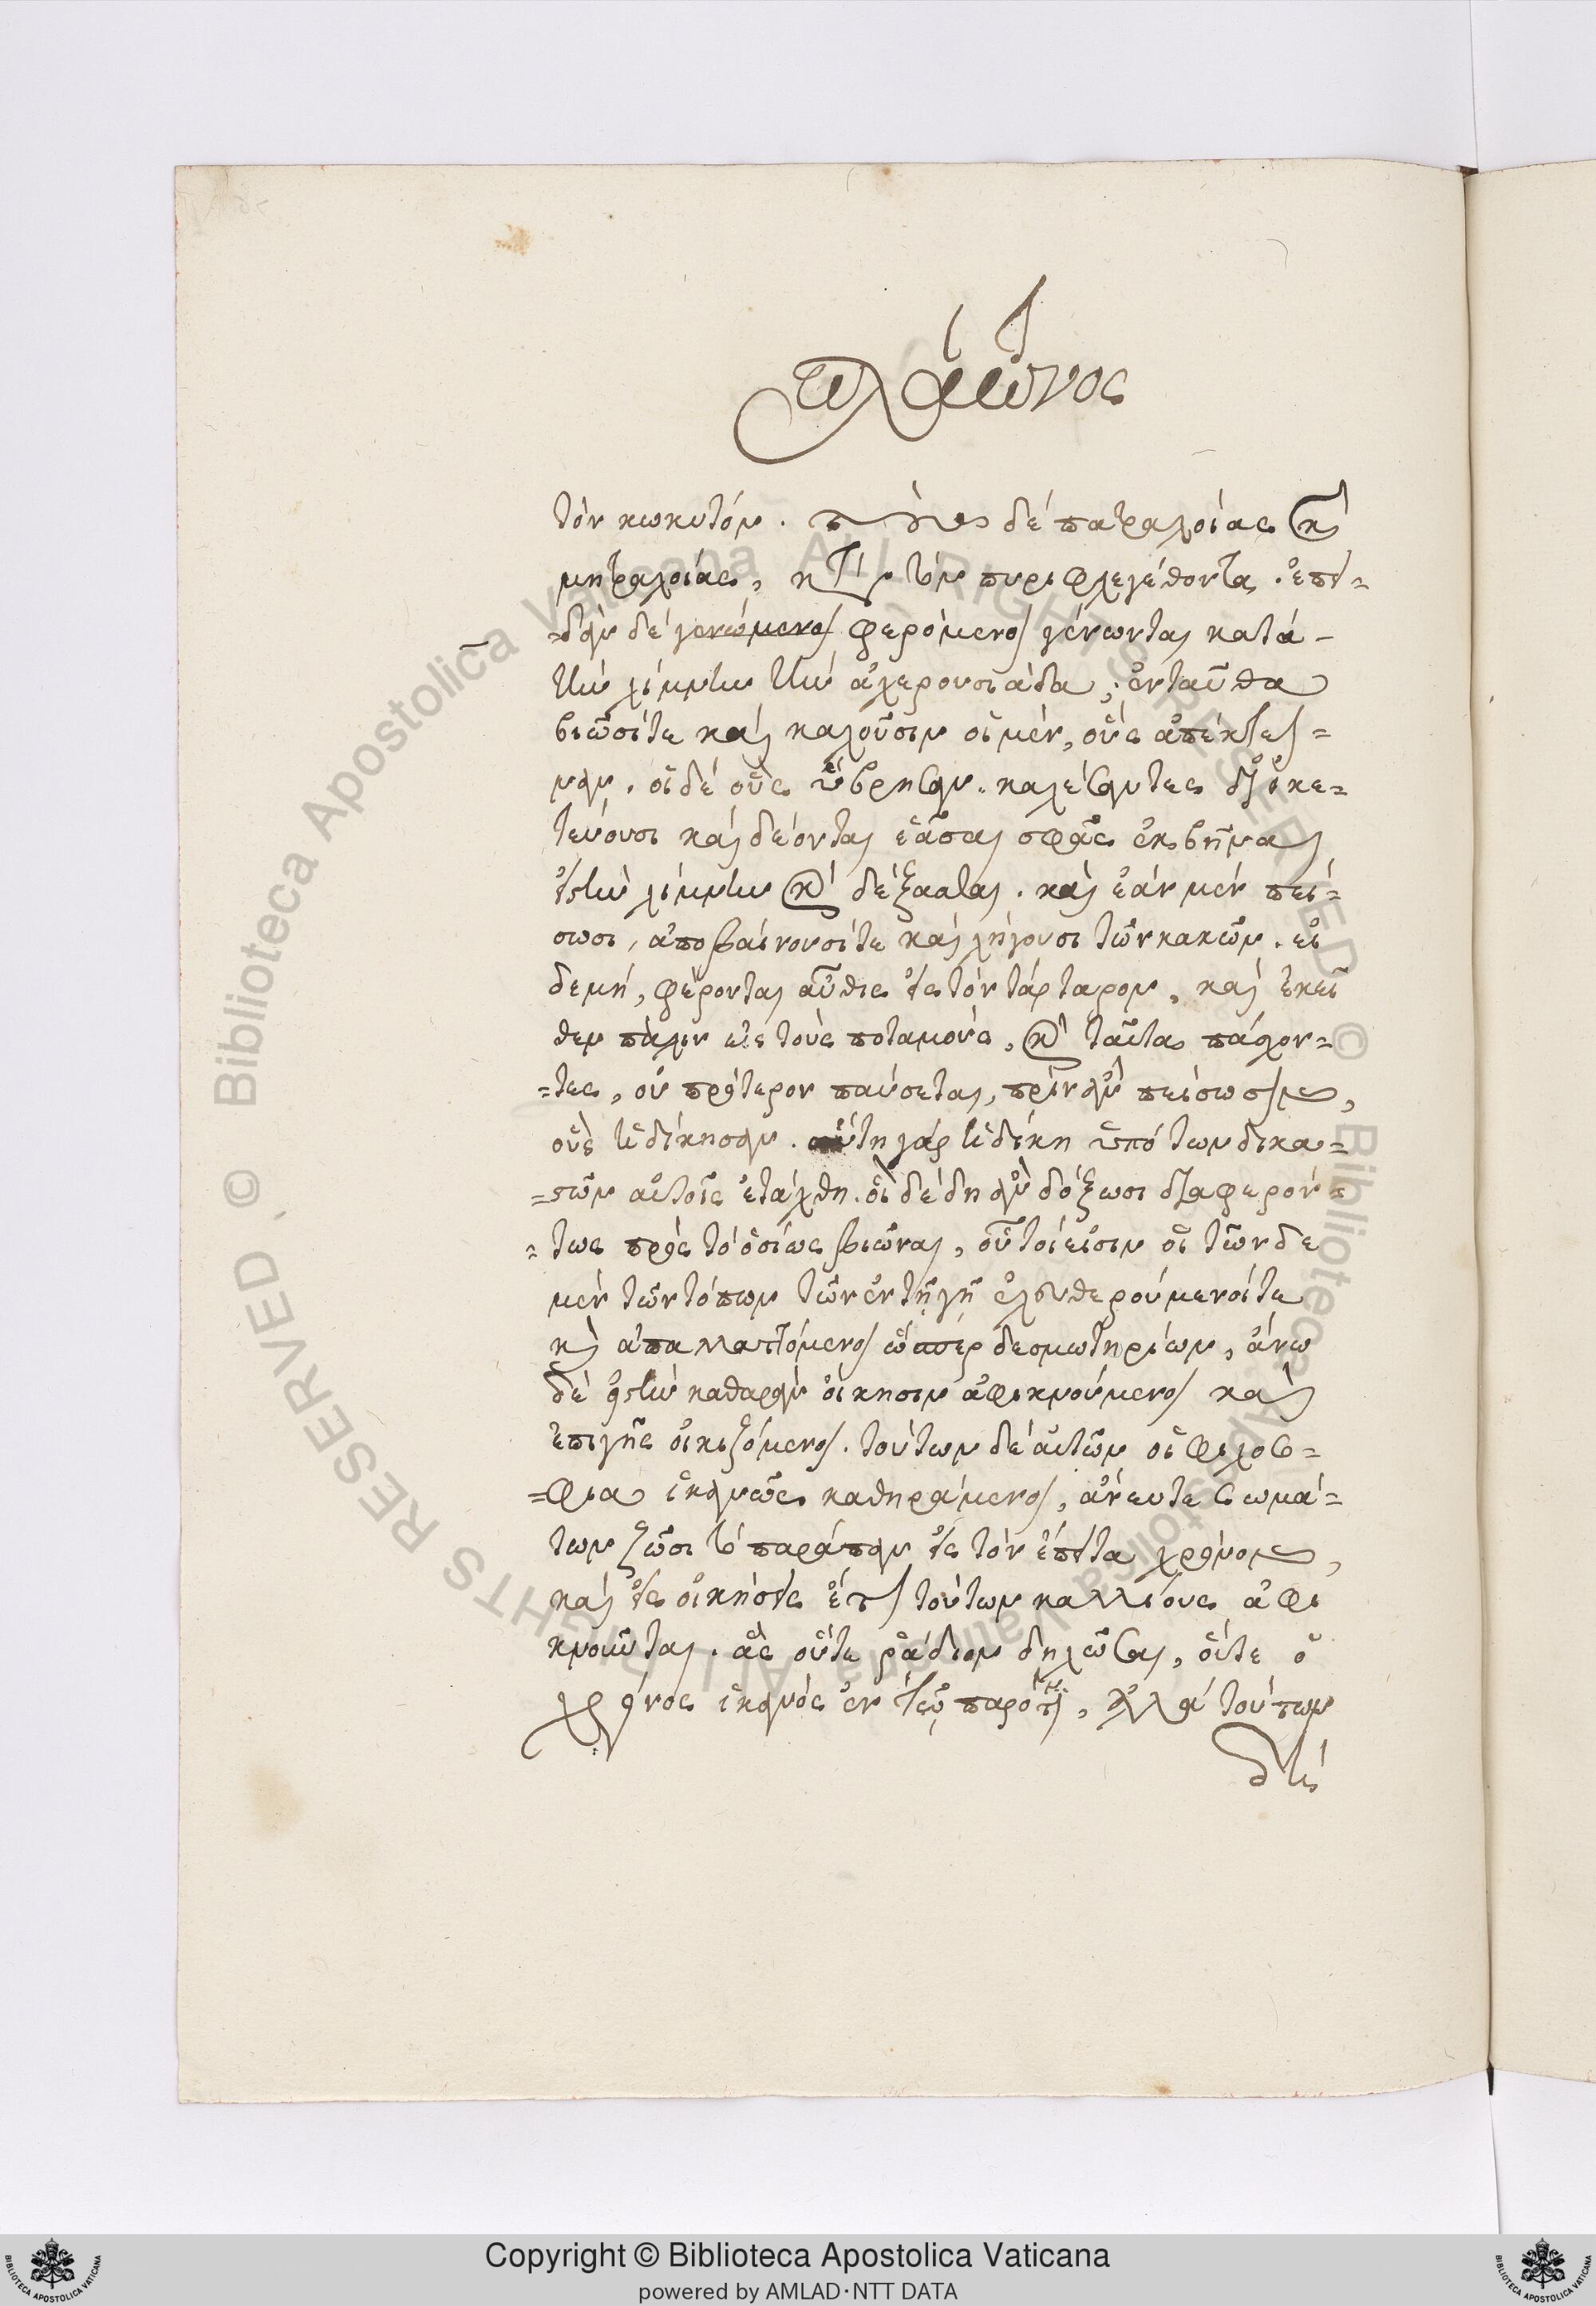 πλάτωνος
τὸν κωκυτόν. τοὺς δὲ πατραλοίας καὶ
μητραλοίας, κατὰ τὸν πυριφλεγέθοντα. ἐπει-
-δὰν δὲ γενώμενοι φερόμενοι γένωνται κατὰ-
τὴν λίμνην τὴν ἀχερουσιάδα, ἐνταῦθα
βιῶσίτε καὶ καλοῦσιν οἱ μέν, οὓς ἀπέκτει-
ναν. οἱ δὲ οὓς ὕβρησαν. καλέσαντες δἱκε-
τεύουσι καὶ δέονται ἐᾶσαι σφᾶς ἐκβῆναι
εἰς τὴν λίμνην καὶ δέξασται. καὶ ἐὰν μὲν πεί-
σωσι, ἀποβαίνουσίτε καὶ λήγουσι τῶν κακῶν. εἰ
δεμή, φέρονται αὖθις εἰς τὸν τάρταρον, καὶ ἐκεῖ
θεν πάλιν εἰς τοὺς ποταμούς, καὶ ταῦτα πάσχον-
-τες, οὐ πρότερον παύσεται, πρὶν ἂν πείσωσιν,
οὓς ἠδίκησαν. αὕτη γὰρ ἡ δίκη ὑπὸ τῶν δικα-
-στῶν αὐτοῖς ἐτάχθη. οἳ δὲ δὴ ἂν δόξωσι διαφερόν-
-τως πρὸς τὸ ὁσίως βιῶναι, οὗτοί εἰσιν οἱ τῶνδε
μὲν τῶν τόπων τῶν ἐν τῇ γῇ ἐλευθερούμενοίτε
καὶ ἀπαλλαττόμενοι ὥσπερ δεσμωτηρίων, ἄνω
δὲ εἰς τὴν καθαρὰν οἴκησιν ἀφικνούμενοι καὶ
ἐπὶ γῆς οἰκιζόμενοι. τούτων δὲ αὐτῶν οἱ φιλοσ-
-φια ἱκανῶς καθηράμενοι, ἄνευτε σωμά-
των ζῶσι τὸ παράπαν εἰς τὸν ἔπειτα χρόνον,
καὶ εἰς οἰκήσεις ἔτι τούτων καλλίους ἀφι
κνοῦνται. ἃς οὔτε ῥάδιον δηλῶσαι, οὔτε ὁ
χρόνος ἱκανὸς ἐν τῷ παρόντι, ἀλλὰ τούτων
δὴ